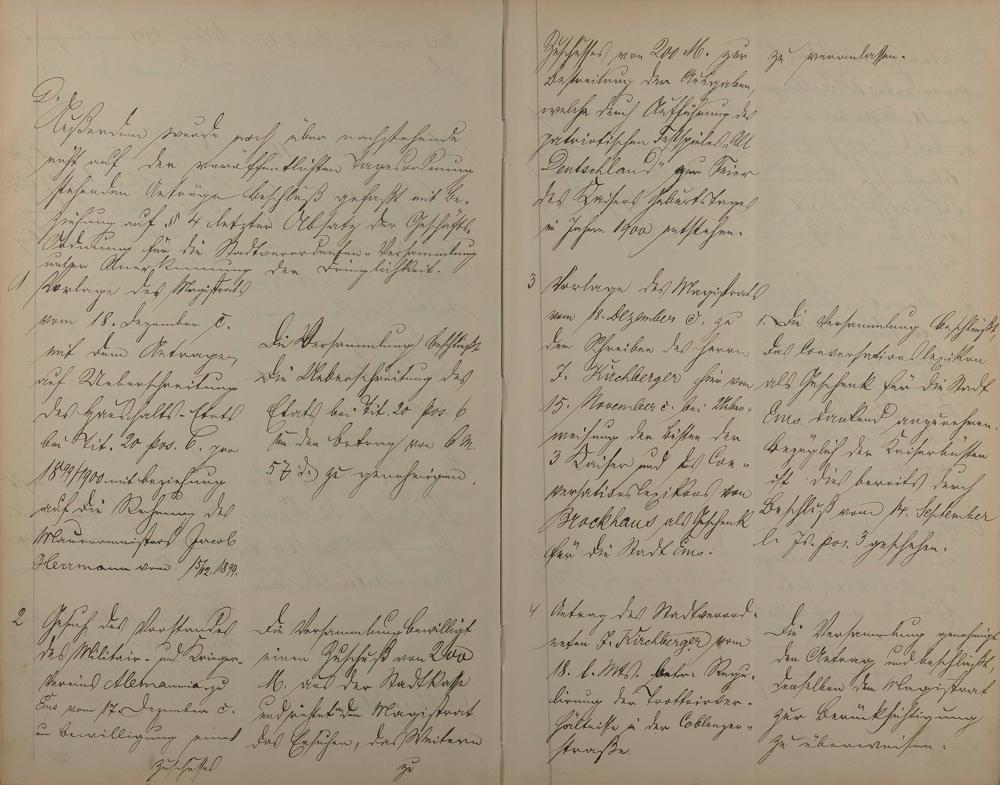 D.
Außerdem wurde noch über nachstehende
nicht auf der veröffentlichten Tagesordnung
stehenden Anträge Beschluß gefaßt mit Be-
ziehung auf § 4 letzter Absatz der Geschäfts-
Ordnung für die Stadtverordneten-Versammlung
unter Anerkennung der Dringlichkeit.
1 Vorlage des Magistrats
vom 18. Dezember c.
mit dem Antrage,
auf Ueberschreitung
des Haushalts-Etats
bei Tit. 20 pos. 6. pro
1899/1900 mit Beziehung
auf die Rechnung des
Maurermeisters Jacob
Herrmann vom 15/12. 1899.
Die Versammlung beschließt
die Ueberschreitung des
Etats bei Tit. 20 pos. 6
um den Betrag von 6 M.
57 d. zu genehmigen.
2 Gesuch des Vorstandes
des Militair- und Krieger-
Vereins Alemannia zu
Ems vom 17. Dezember c.
um Bewilligung eines
Zuschusses
Die Versammlung bewilligt
einen Zuschuß von 200
M. aus der Stadtkasse
und richtet an den Magistrat
das Ersuchen, das Weitere
zu
Zuschusses von 200 M. zur
Bestreitung der Ausgaben,
welche durch Aufführung des
patriotischen Festspieles „All
Deutschland" zur Feier
des Kaisers Geburtstages
im Jahre 1900 entstehen.
zu veranlassen.
3 Vorlage des Magistrats
vom 18. Dezember c. zu
dem Schreiben des Herrn
J. Kirchberger hier vom
15. November c. bei Ueber-
weisung der Büsten der
3 Kaiser und des Con-
versationslexikons von
Brockhaus als Geschenk
für die Stadt Ems.
1. Die Versammlung beschließt,
das Conversationslexikon
als Geschenk für die Stadt
Ems dankend anzunehmen.
Bezüglich der Kaiserbüsten
ist dies bereits durch
Beschluß vom 14. September
l. Js. pos. 3 geschehen.
4 Antrag des Stadtverord-
neten J. Kirchberger vom
18. l. Mts. betr. Regu-
lirung der Trottoirver-
hältniße in der Coblenzer-
straße.
Die Versammlung genehmigt
den Antrag und beschließt,
denselben dem Magistrat
zur Berücksichtigung
zu überweisen.